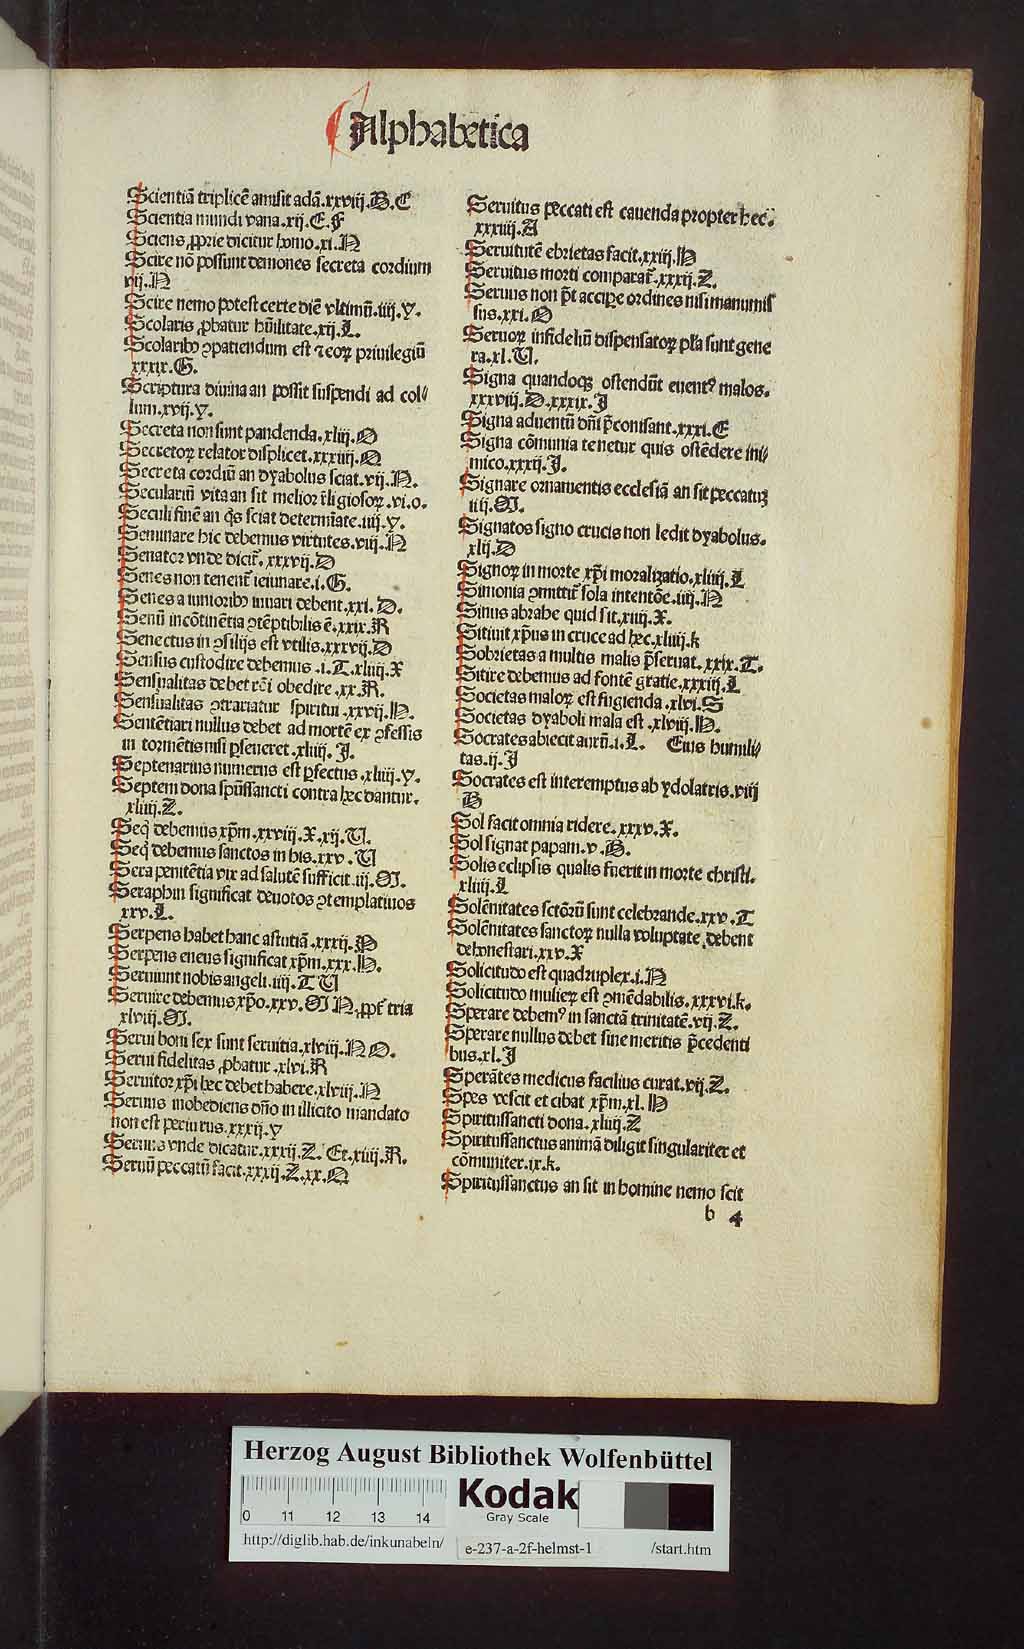 Alphabetica
Scientiā triplicē amisit adā.xxviij.B.C
Scientia mundi vana.xij.E.F
Sciens ꝓprie dicitur homo.xi.N
Scire nō possunt demones secreta cordium
vij.N
Scire nemo potest certe diē vltimū.iiij.Y.
Scolaris ꝓbatur hūilitate.xij.L.
Scolaribꝰ ꝯpatiendum est ⁊ eoꝝ priuilegiū
xxxix.G.
Scriptura diuina an possit suspendi ad col⸗
lum.xvij.Y.
Secreta non sunt pandenda.xliij.O
Secretoꝝ relator displicet.xxxiiij.O
Secreta cordiū an dyabolus sciat.vij.N.
Seculariū vita an sit melior r̄ligiosoꝝ.vi.o.
Seculi finē an q̄s sciat determīate.iiij.Y.
Seminare hic debemus virtutes.viij.N
Senator vnde dicit̄.xxxvij.D
Senes non tenent̄ ieiunare.i.G.
Senes a iunioribꝰ iuuari debent.xxi.D.
Senū incōtinētia ꝯtēptibilis ē.xxix.R
Senectus in ꝯsilijs est vtilis.xxxvij.D
Sensus custodire debemus.i.T.xliiij.X
Sensualitas debet rōi obedire.xx.R.
Sensualitas ꝯtrariatur spiritui.xxvij.N.
Sentētiari nullus debet ad mortē ex ꝯfessis
in tormētis nisi ꝑseueret.xliiij.I.
Septenarius numerus est ꝑfectus.xliiij.Y.
Septem dona spūssancti contra hec dantur.
xliiij.Z.
Seqͥ debemus xp̄m.xxviij.X.xij.U.
Seqͥ debemus sanctos in his.xxv.U
Sera penitētia vix ad salutē sufficit.iij.M.
Seraphin significat deuotos ꝯtemplatiuos
xxv.L.
Serpens habet hanc astutiā.xxxij.N
Serpens eneus significat xp̄m.xxx.N.
Seruiunt nobis angeli.iiij.T U
Seruire debemus xp̄o.xxv.M N ꝓpt̄ tria
xlviij.M.
Serui boni sex sunt seruitia.xlviij.N O.
Serui fidelitas ꝓbatur.xlvi.R
Seruitor xp̄i hec debet habere.xlviij.N
Seruus inobediens dn̄o in illicito mandato
non est periurus.xxxij.Y
Seruus vnde dicatur.xxxij.Z. Et.xiiij.R.
Seruū peccatū facit.xxxij.Z.xx.O
Seruitus peccati est cauenda propter hec.
xxxiiij.A
Seruitutē ebrietas facit.xxiij.N
Seruitus morti comparat̄.xxxij.Z.
Seruus non p̄t accipe ordines nisi manumis
sus.xxi.O
Seruoꝝ infideliū dispensatoꝝ pl̄a sunt gene
ra.xl.U.
Signa quandoqꝫ ostendūt euentꝰ malos.
xxxviij.D.xxxix.I
Signa aduentū dn̄i p̄conisant.xxxi.E
Signa cōmunia tenetur quis ostēdere ini⸗
mico.xxxij.I.
Signare ornamentis ecclesiā an sit peccatuꝫ
iiij.M.
Signatos signo crucis non ledit dyabolus.
xlij.D
Signoꝝ in morte xp̄i moralizatio.xliiij.L
Simonia ꝯmittit̄ sola intentōe.iiij.N
Sinus abrahe quid sit.xiiij.X.
Sitiuit xp̄us in cruce ad hec.xliiij.k
Sobrietas a multis malis p̄seruat.xxix.T.
Sitire debemus ad fontē gratie.xxxiij.L
Societas maloꝝ est fugienda.xlvi.S
Societas dyaboli mala est.xlviij.N.
Socrates abiecit aurū.i.L. Eius humili⸗
tas.ij.I
Socrates est interemptus ab ydolatris.viij
B
Sol facit omnia ridere.xxxv.X.
Sol signat papam.v.B.
Solis eclipsis qualis fuerit in morte christi.
xliiij.L
Solēnitates sctōrū sunt celebrande.xxv.T
Solēnitates sanctoꝝ nulla voluptate debent
dehonestari.xxv.X
Solicitudo est quadruplex.i.N
Solicitudo mulieꝝ est ꝯmēdabilis.xxxvi.k.
Sperare debemꝰ in sanctā trinitatē.vij.Z.
Sperare nullus debet sine meritis p̄cedenti
bus.xl.I
Sperātes medicus facilius curat.vij.Z.
Spes vescit et cibat xp̄m.xl.N
Spiritussancti dona.xliiij.Z
Spiritussanctus animā diligit singulariter et
cōmuniter.ix.k.
Spiritussanctus an sit in homine nemo scit
b 4
Herzog August Bibliothek Wolfenbüttel
0 11 12 13 14
Kodak
Gray Scale
http://diglib.hab.de/inkunabeln/ e-237-a-2f-helmst-1 /start.htm